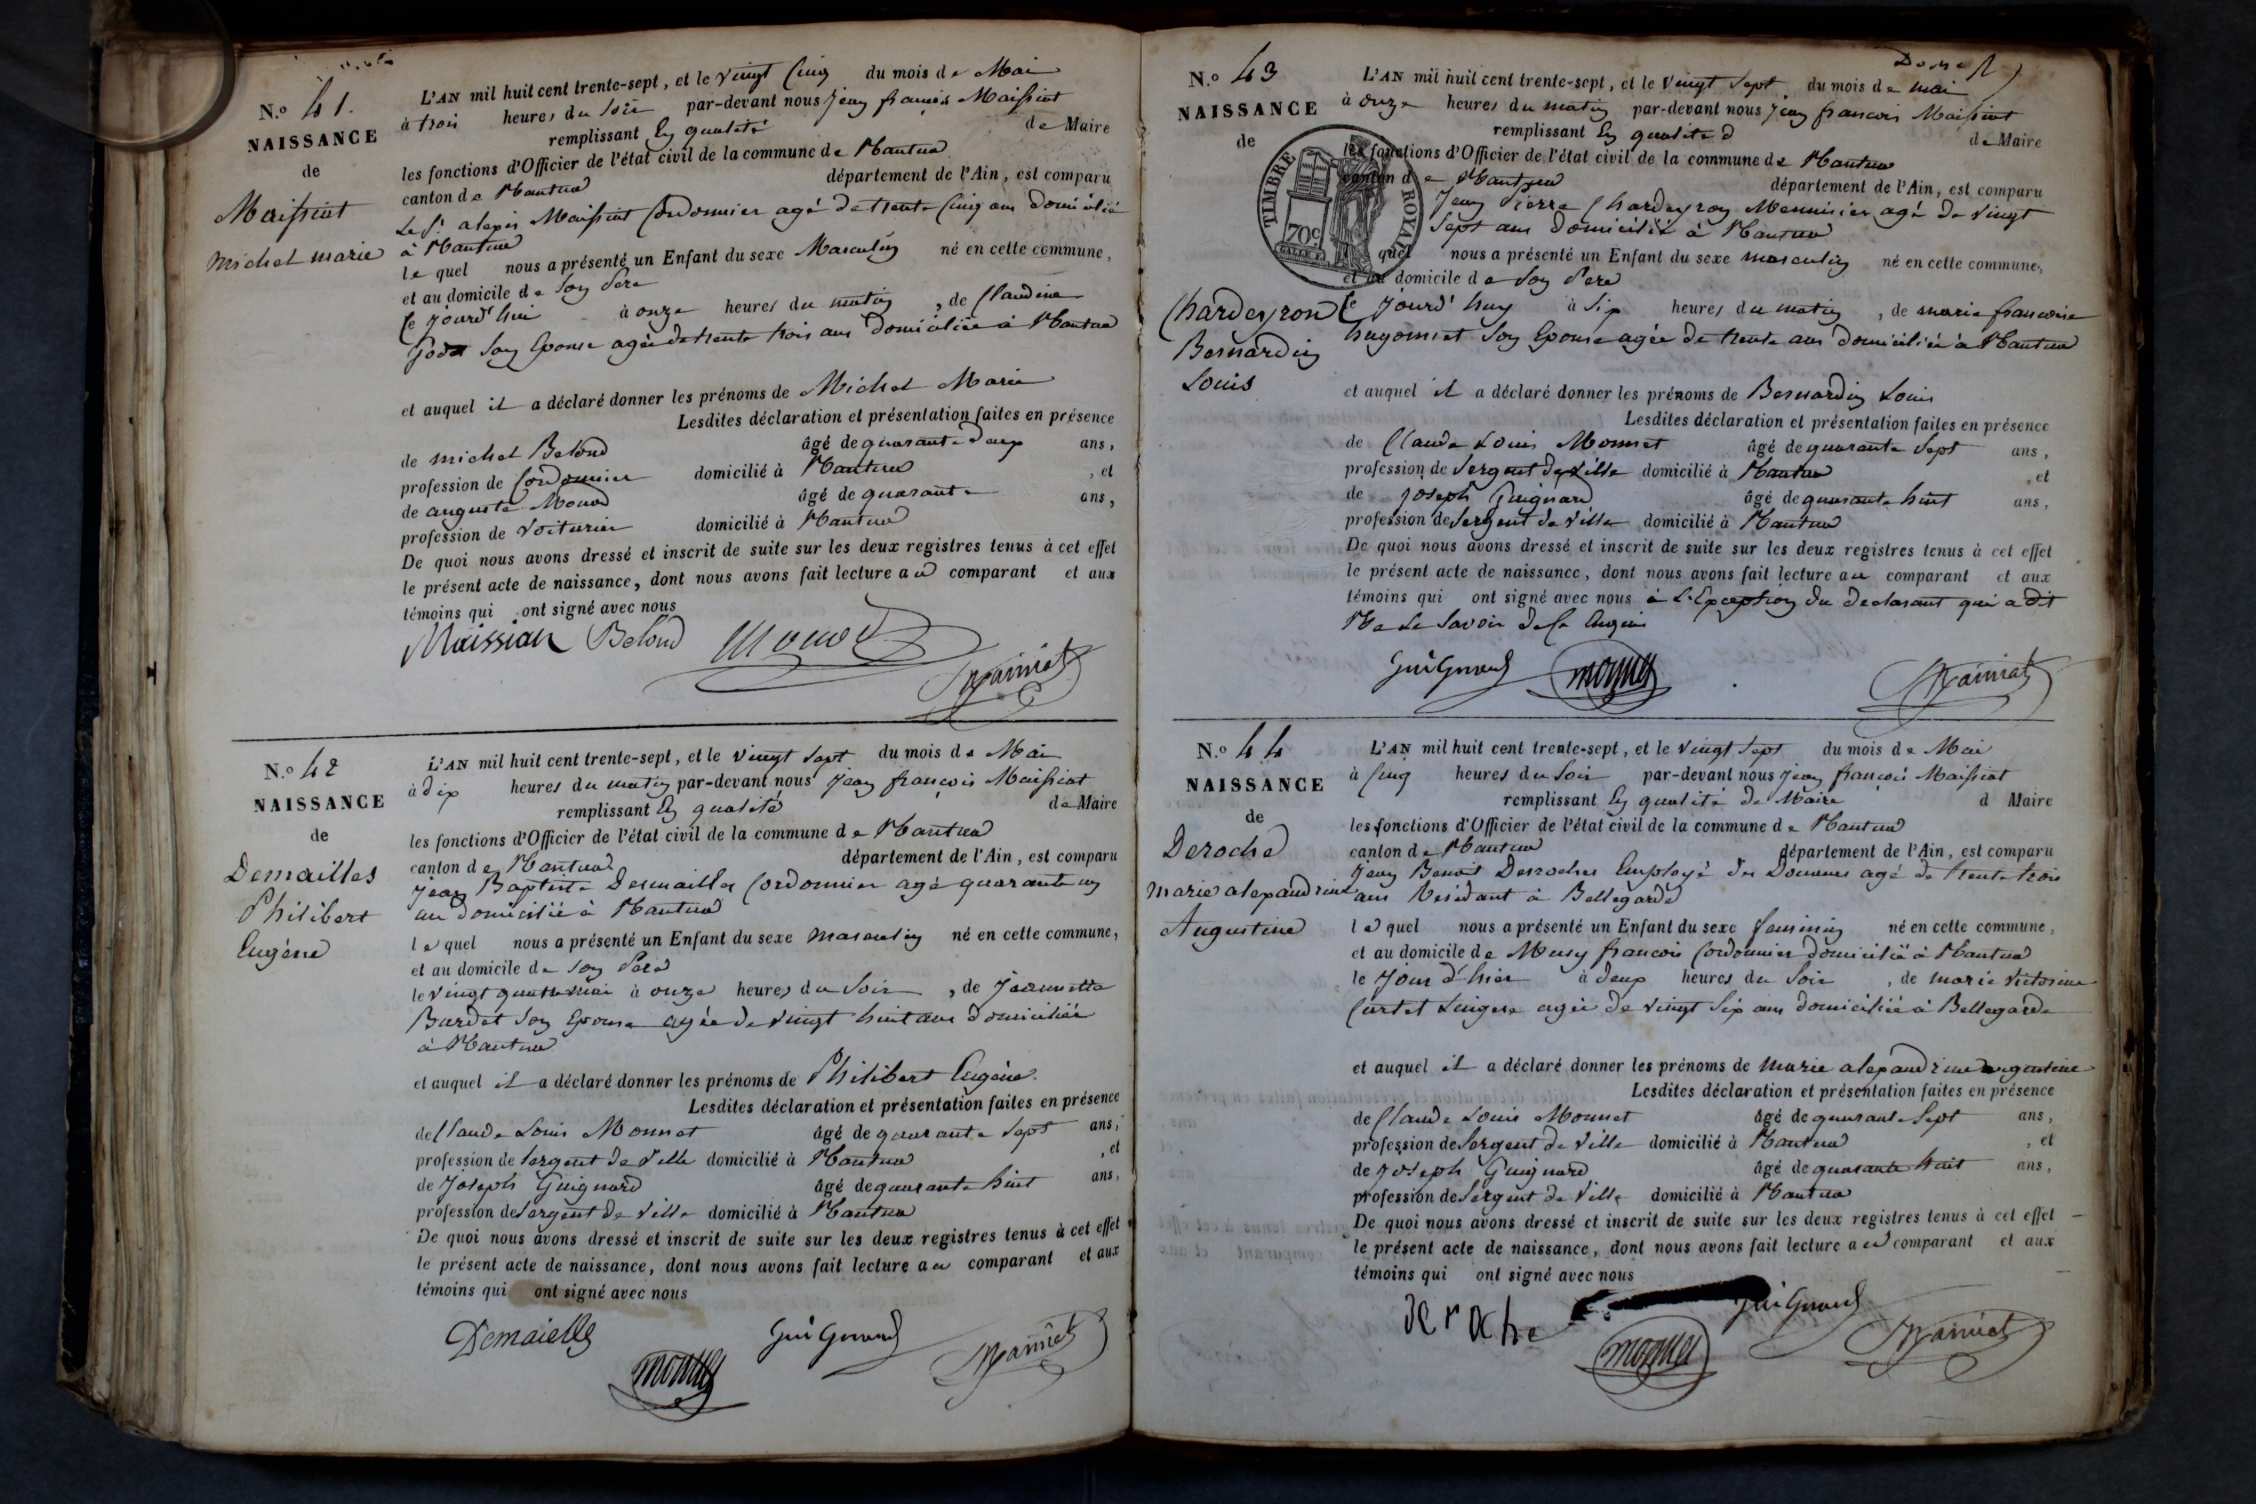 N.° 41.
NAISSANCE
de
Maissiat
Michel marie
L'AN mil huit cent trente-sept, et le vingt Cinq du mois de Mai
à trois heures du soir par-devant nous Jean françois Maissiat
remplissant En qualité de Maire
les fonctions d'Officier de l'état civil de la commune de Nantua
canton de Nantua département de l'Ain, est comparu
Le Sr. alexis Maissiat Cordonnier agé de trente Cinq ans domicilié
à Nantua
le quel nous a présenté un Enfant du sexe Masculin né en cette commune,
et au domicile de Son Pere
Ce Jourd'hui à onze heures du matin, de Claudine
Son Epouse agée de trente trois ans domiciliée à Nantua
et auquel il a déclaré donner les prénoms de Michel Marie
Lesdites déclaration et présentation faites en présence
de michel Belond âgé de quarante deux ans,
profession de Cordonnier domicilié à Nantua, et
de auguste Monod âgé de quarante ans,
profession de Voiturier domicilié à Nantua
De quoi nous avons dressé et inscrit de suite sur les deux registres tenus à cet effet
le présent acte de naissance, dont nous avons fait lecture au comparant et aux
témoins qui ont signé avec nous
Maissiat Belond Monod
Maissiat
N.° 42
NAISSANCE
de
Demailles
Philibert
Eugène
L'AN mil huit cent trente-sept, et le vingt Sept du mois de Mai
à dix heures du matin par-devant nous Jean françois Maissiat
remplissant En qualité de Maire
les fonctions d'Officier de l'état civil de la commune de Nantua
canton de Nantua département de l'Ain, est comparu
Jean Baptiste Demailles Cordonnier agé quarante un
ans domicilié à Nantua
le quel nous a présenté un Enfant du sexe masculin né en cette commune,
et au domicile de son Pere
le vingt quatre mai à onze heures du Soir, de Jeannette
Burdet Son Epouse agée de vingt huit ans domiciliée
à Nantua
et auquel il a déclaré donner les prénoms de Philibert Eugène.
Lesdites déclaration et présentation faites en présence
de Claude Louis Monnet âgé de quarante Sept ans,
profession de Sergent de Ville domicilié à Nantua, et
de Joseph Guignard âgé de quarante huit ans,
profession de Sergent de Ville domicilié à Nantua
De quoi nous avons dressé et inscrit de suite sur les deux registres tenus à cet effet
le présent acte de naissance, dont nous avons fait lecture au comparant et aux
témoins qui ont signé avec nous
Demaielle
monnet
GuiGnard
Maissiat
N.° 43
NAISSANCE
de
TIMBRE ROYAL
70c
Chardeyron
Bernardin
Louis
L'AN mil huit cent trente-sept, et le vingt Sept du mois de mai
à onze heures du matin par-devant nous Jean françois Maissiat
remplissant En qualité d de Maire
les fonctions d'Officier de l'état civil de la commune de Nantua
canton de Nantua département de l'Ain, est comparu
Jean Pierre Chardeyron Menuisier agé de vingt
Sept ans domicilié à Nantua
quel nous a présenté un Enfant du sexe masculin né en cette commune,
et au domicile de Son Pere
Ce Jourd'huy à Six heures du matin, de marie françoise
hugonnet Son Epouse agée de trente ans domiciliée à Nantua
et auquel il a déclaré donner les prénoms de Bernardin Louis
Lesdites déclaration et présentation faites en présence
de Claude Louis Monnet âgé de quarante Sept ans,
profession de Sergent de Ville domicilié à Nantua, et
de Joseph Guignard âgé de quarante huit ans,
profession de Sergent de Ville domicilié à Nantua
De quoi nous avons dressé et inscrit de suite sur les deux registres tenus à cet effet
le présent acte de naissance, dont nous avons fait lecture au comparant et aux
témoins qui ont signé avec nous à L'Exception du declarant qui a dit
Ne Le Savoir de Ce Enquis
GuiGnard monnet Maissiat
N.° 44
NAISSANCE
de
Deroche
marie alexandrine
Augustine
L'AN mil huit cent trente-sept, et le vingt Sept du mois de Mai
à Cinq heures du Soir par-devant nous Jean françois Maissiat
remplissant En qualité de Maire d Maire
les fonctions d'Officier de l'état civil de la commune de Nantua
canton de Nantua département de l'Ain, est comparu
Jean Benoit Desroches Employé des Douanes agé de trente trois
ans Résidant à Bellegarde
le quel nous a présenté un Enfant du sexe feminin né en cette commune,
et au domicile de françois Cordonnier domicilié à Nantua
le Jour d'hier à deux heures du Soir, de marie Victorine
Curtet Lingere agée de vingt Six ans domiciliée à Bellegarde
et auquel il a déclaré donner les prénoms de marie alexandrine augustine
Lesdites déclaration et présentation faites en présence
de Claude Louis Monnet âgé de quarante Sept ans,
profession de Sergent de Ville domicilié à Nantua, et
de Joseph Guignard âgé de quarante huit ans,
profession de Sergent de Ville domicilié à Nantua
De quoi nous avons dressé et inscrit de suite sur les deux registres tenus à cet effet
le présent acte de naissance, dont nous avons fait lecture au comparant et aux
témoins qui ont signé avec nous
deroche GuiGnard
monnet Maissiat